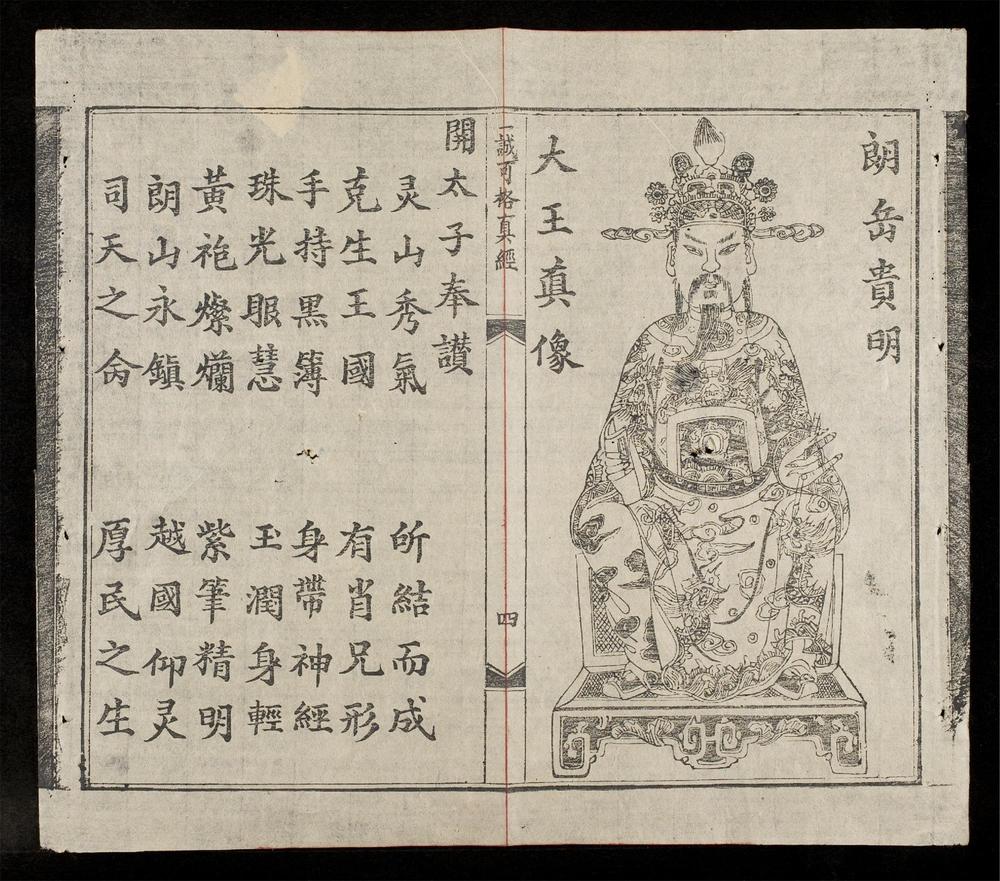 朗岳貴明
大王真像
一誠可格真經
四
開太子奉讃
灵山秀氣 所結而成
克生王國 有肖兄形
手持黑簿 身帶神經
珠光眼慧 玉潤身輕
黃袍燦爛 紫筆精明
朗山永鎮 越國仰灵
司天之命 厚民之生